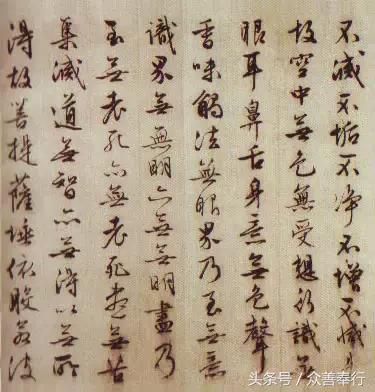 不滅不垢不净不增不減
故空中無色無受想行識無
眼耳鼻舌身意無色聲
香味觸法無眼界乃至無意
識界無無明亦無無明盡乃
至無老死亦無老死盡無苦
集滅道無智亦無得以無所
得故菩提薩埵依般若波
头条号 / 众善奉行